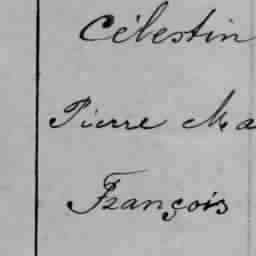 Célestin
Pierre Ma
François